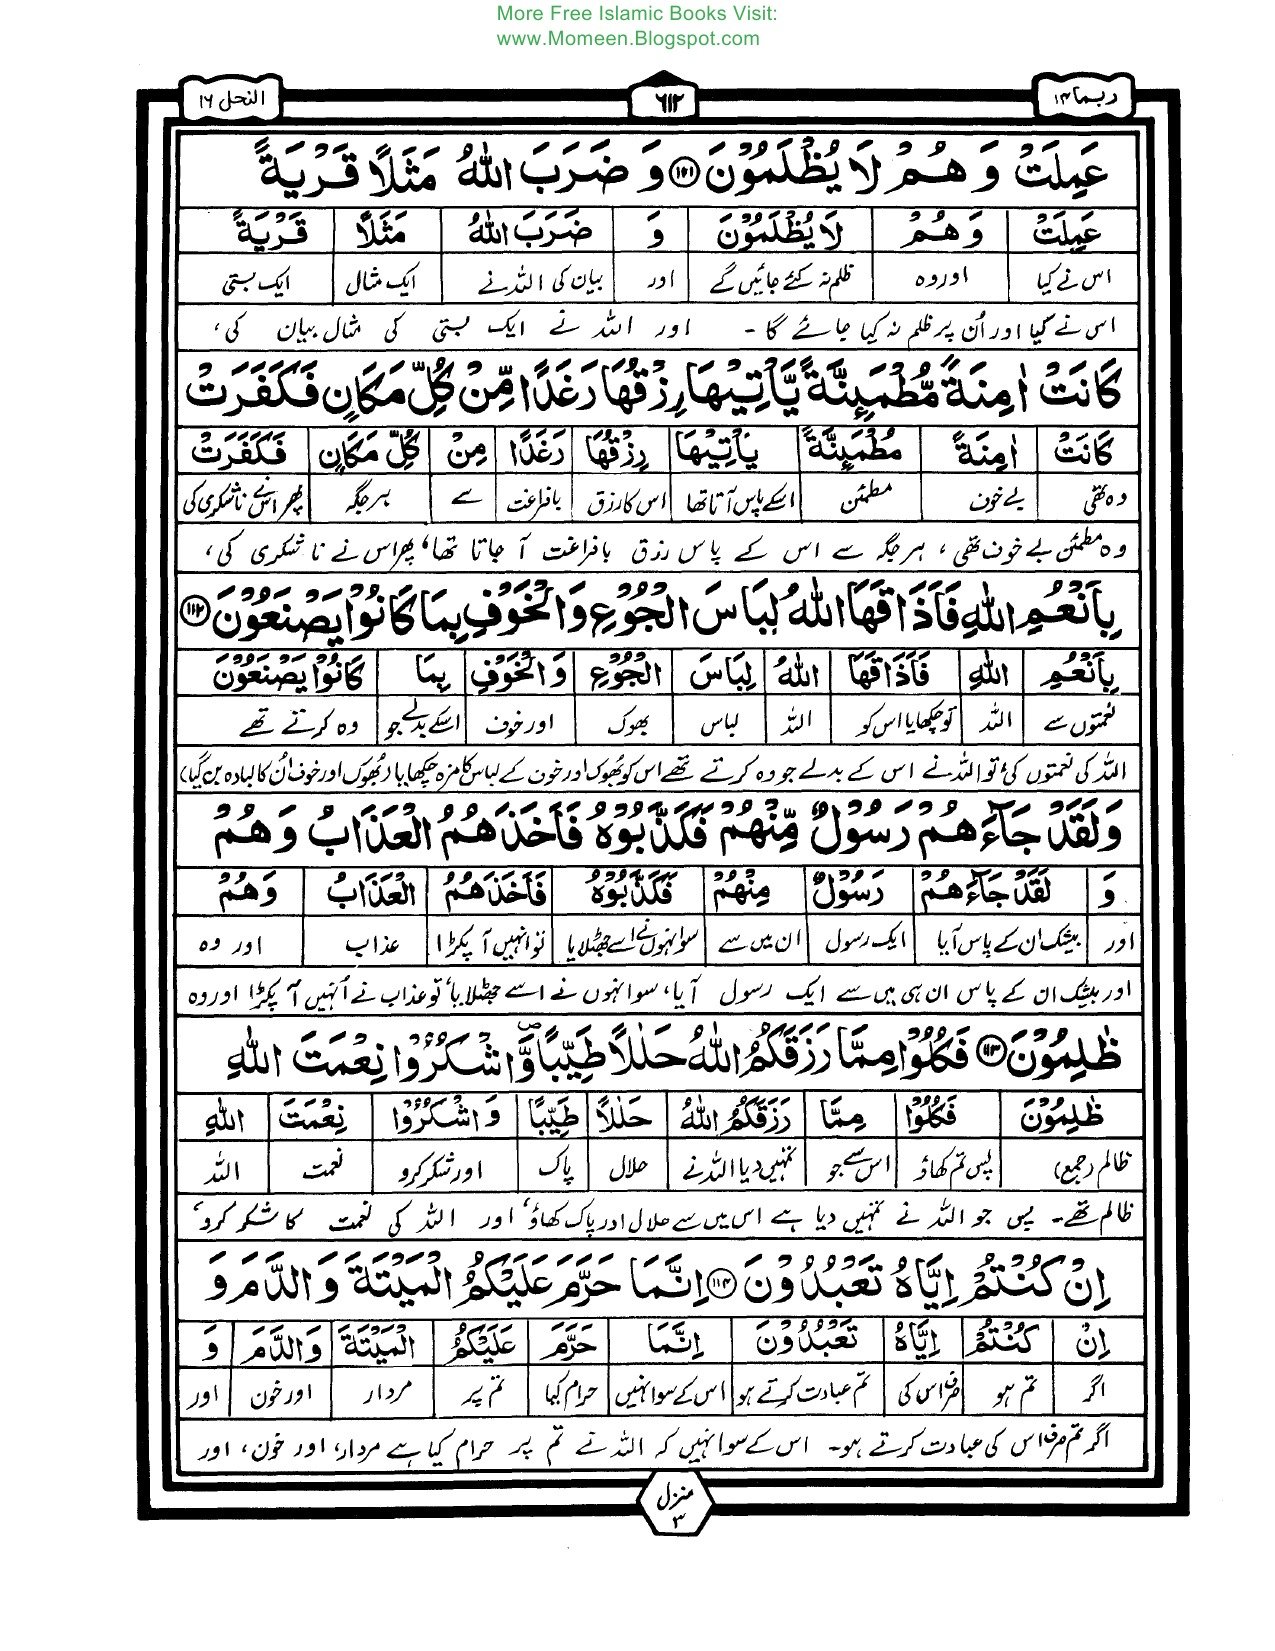 More Free Islamic Books Visit:
www.Momeen.Blogspot.com
ربما ۱۴
٦١٢
النحل ١٦
عَمِلَتْ وَهُمْ لَا يُظْلَمُوْنَ ﴿۱۱۱﴾ وَ ضَرَبَ اللّٰهُ مَثَلًا قَرْيَةً
عَمِلَتْ وَهُمْ لَا يُظْلَمُوْنَ وَ ضَرَبَ اللّٰهُ مَثَلًا قَرْيَةً
اس نے کیا اور وہ ظلم نہ کئے جائیں گے اور بیان کی اللہ نے ایک مثال ایک بستی
اس نے کیا اور اُن پر ظلم نہ کیا جائے گا - اور اللہ نے ایک بستی کی مثال بیان کی،
كَانَتْ اٰمِنَةً مُّطْمَئِنَّةً يَّأْتِيْهَا رِزْقُهَا رَغَدًا مِّنْ كُلِّ مَكَانٍ فَكَفَرَتْ
كَانَتْ اٰمِنَةً مُطْمَئِنَّةً يَأْتِيْهَا رِزْقُهَا رَغَدًا مِنْ كُلِّ مَكَانٍ فَكَفَرَتْ
وہ تھی بے خوف مطمئن اسکے پاس آتا تھا اس کا رزق بافراغت سے ہر جگہ پھر اس نے ناشکری کی
وہ مطمئن بے خوف تھی، ہر جگہ سے اس کے پاس رزق بافراغت آ جاتا تھا، پھر اس نے ناشکری کی،
بِاَنْعُمِ اللّٰهِ فَاَذَاقَهَا اللّٰهُ لِبَاسَ الْجُوْعِ وَالْخَوْفِ بِمَا كَانُوْا يَصْنَعُوْنَ ﴿۱۱۲﴾
بِاَنْعُمِ اللّٰهِ فَاَذَاقَهَا اللّٰهُ لِبَاسَ الْجُوْعِ وَالْخَوْفِ بِمَا كَانُوْا يَصْنَعُوْنَ
نعمتوں سے اللہ تو چکھایا اس کو اللہ لباس بھوک اور خوف اسکے بدلے جو وہ کرتے تھے
اللہ کی نعمتوں کی، تو اللہ نے اس کے بدلے جو وہ کرتے تھے اس کو بھوک اور خوف کے لباس کا مزہ چکھایا (بھوک اور خوف اُن کا لبادہ بن گیا)
وَلَقَدْ جَآءَهُمْ رَسُوْلٌ مِّنْهُمْ فَكَذَّبُوْهُ فَاَخَذَهُمُ الْعَذَابُ وَهُمْ
وَ لَقَدْ جَآءَهُمْ رَسُوْلٌ مِنْهُمْ فَكَذَّبُوْهُ فَاَخَذَهُمُ الْعَذَابُ وَهُمْ
اور بیشک ان کے پاس آیا ایک رسول ان میں سے سو انہوں نے اسے جھٹلایا تو انہیں آ پکڑا عذاب اور وہ
اور بیشک ان کے پاس ان ہی میں سے ایک رسول آیا، سو انہوں نے اسے جھٹلایا، تو عذاب نے اُنہیں آ پکڑا اور وہ
ظٰلِمُوْنَ ﴿۱۱۳﴾ فَكُلُوْا مِمَّا رَزَقَكُمُ اللّٰهُ حَلٰلًا طَيِّبًا ۖ وَّاشْكُرُوْا نِعْمَتَ اللّٰهِ
ظٰلِمُوْنَ فَكُلُوْا مِمَّا رَزَقَكُمُ اللّٰهُ حَلٰلًا طَيِّبًا وَاشْكُرُوْا نِعْمَتَ اللّٰهِ
ظالم (جمع) پس تم کھاؤ اس سے جو تمہیں دیا اللہ نے حلال پاک اور شکر کرو نعمت اللہ
ظالم تھے۔ پس جو اللہ نے تمہیں دیا ہے اس میں سے حلال اور پاک کھاؤ، اور اللہ کی نعمت کا شکر کرو،
اِنْ كُنْتُمْ اِيَّاهُ تَعْبُدُوْنَ ﴿۱۱۴﴾ اِنَّمَا حَرَّمَ عَلَيْكُمُ الْمَيْتَةَ وَالدَّمَ وَ
اِنْ كُنْتُمْ اِيَّاهُ تَعْبُدُوْنَ اِنَّمَا حَرَّمَ عَلَيْكُمُ الْمَيْتَةَ وَالدَّمَ وَ
اگر تم ہو صرف اس کی تم عبادت کرتے ہو اس کے سوا نہیں حرام کیا تم پر مردار اور خون اور
اگر تم صرف اس کی عبادت کرتے ہو۔ اس کے سوا نہیں کہ اللہ نے تم پر حرام کیا ہے مردار، اور خون، اور
منزل ۳